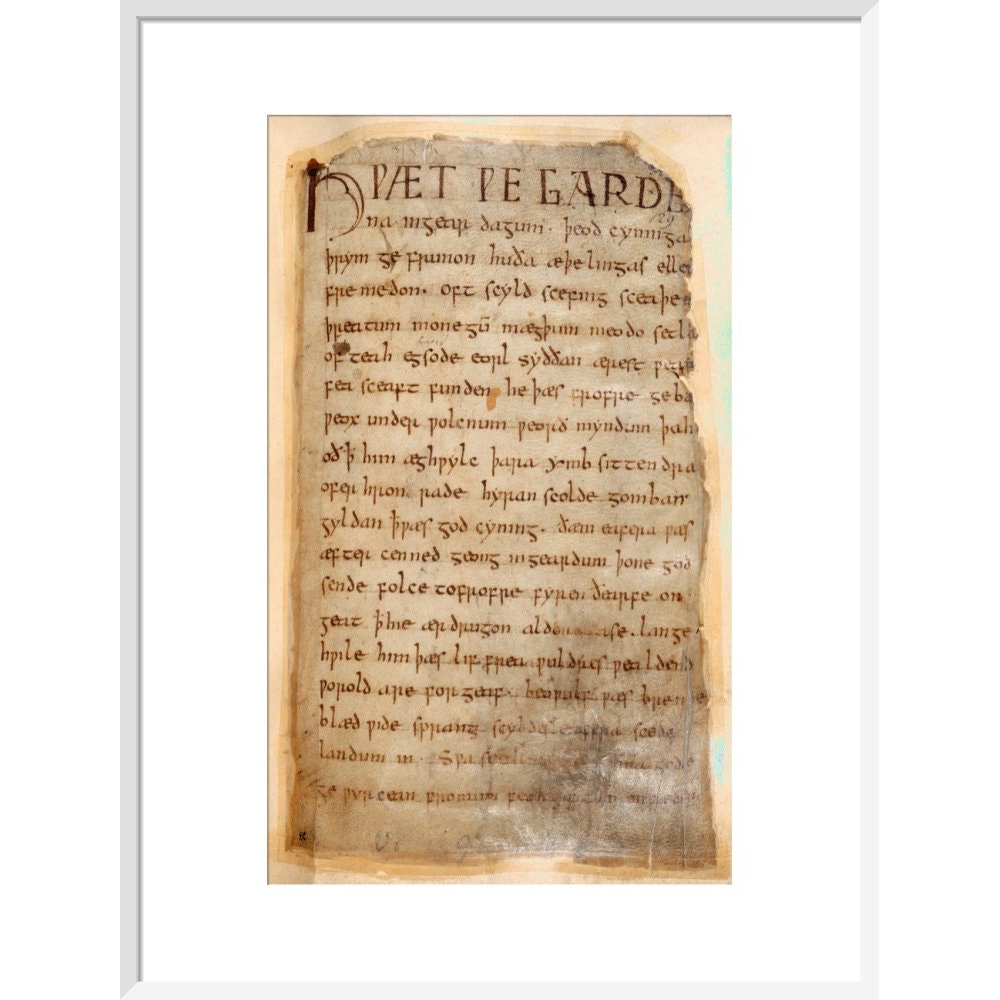 HǷÆT ǷE GARDE
129
na ingear dagum. þeod cyninga
þrym ge frunon huða æþelingas elle
fre medon. oft scyld scefing sceaþe
þreatum monegū mægþum meodo setla
of teah egsode eorl syððan ærest ƿear
fea sceaft funden he þæs frofre geba
ƿeox under ƿolcnum ƿeorð myndum þah
oð ꝥ him æghƿylc þara ymb sittendra
ofer hron rade hyran scolde gomban
gyldan ꝥ ƿæs god cyning. ðæm eafera ƿæs
æfter cenned geong ingeardum þone god
sende folce tofrofre fyren ðearfe on
geat ꝥ hie ær drugon aldor ase. lange
hƿile him þæs lif frea ƿuldres ƿealdend
ƿorold are for geaf. beoƿulf ƿæs breme
blæd ƿide sprang scyldes eafera scede
landum in. Sƿa gode
ge ƿyrcean fromum feoh